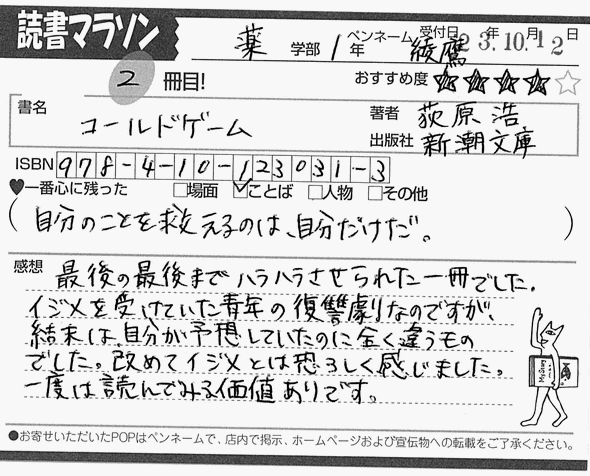 読書マラソン
薬 学部 1年 ペンネーム 綾鷹 受付日 23年10月12日
2 冊目! おすすめ度 ★★★★☆
書名 コールドゲーム
著者 荻原浩
出版社 新潮文庫
ISBN 978-4-10-123031-3
♥一番心に残った □場面 ☑ことば □人物 □その他
(自分のことを救えるのは、自分だけだ。)
感想 最後の最後までハラハラさせられた一冊でした。
イジメを受けていた青年の復讐劇なのですが、
結末は、自分が予想していたのに全く違うもの
でした。改めてイジメとは恐ろしく感じました。
一度は読んでみる価値ありです。
●お寄せいただいたPOPはペンネームで、店内で掲示、ホームページおよび宣伝物への転載をご了承ください。